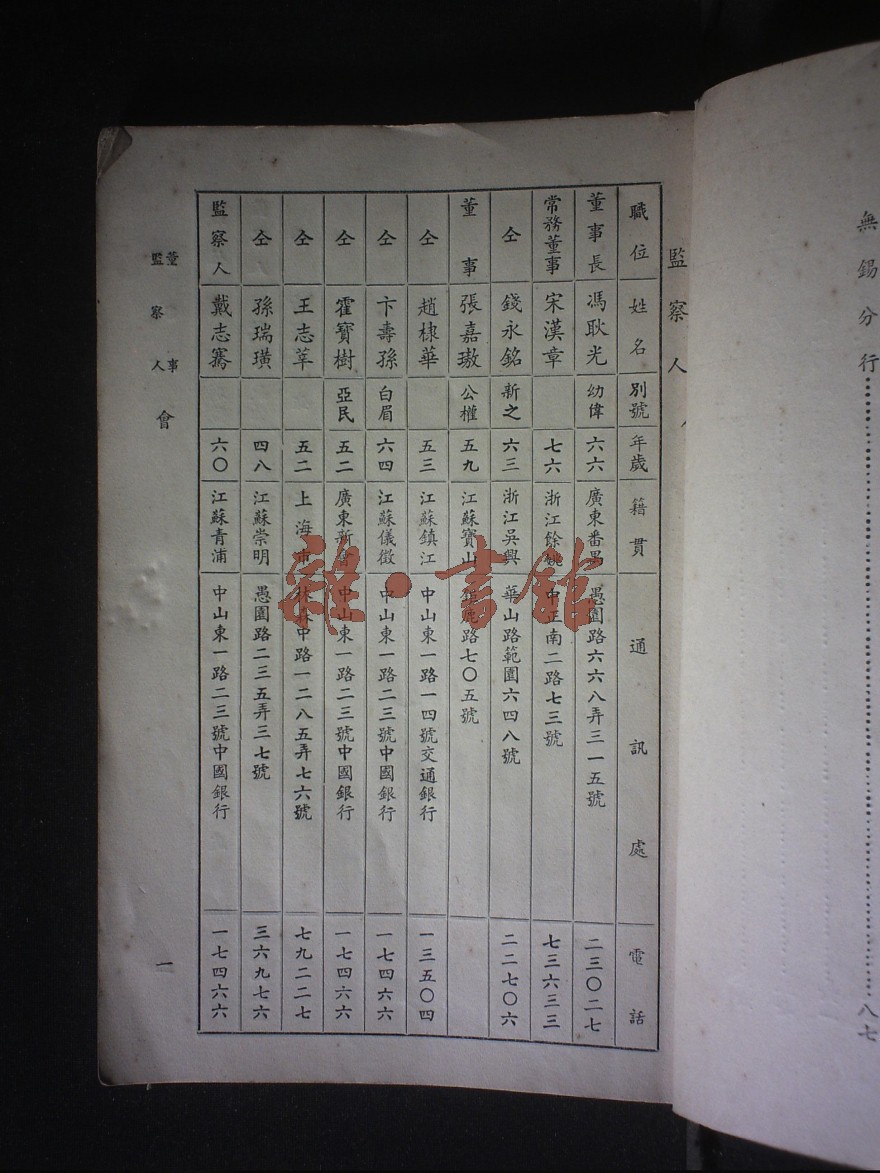 無錫分行……………………八七
監察人
職位 姓名 別號 年歲 籍貫 通訊處 電話
董事長 馮耿光 幼偉 六六 廣東番禺 愚園路六六八弄三一五號 二三〇二七
常務董事 宋漢章 七六 浙江餘姚 中正南二路七三號 七三六三三
仝 錢永銘 新之 六三 浙江吳興 華山路範園六四八號 二二七〇六
董事 張嘉璈 公權 五九 江蘇寶山 鹿路七〇五號
仝 趙棣華 五三 江蘇鎮江 中山東一路一四號交通銀行 一三五〇四
仝 卞壽孫 白眉 六四 江蘇儀徵 中山東一路二三號中國銀行 一七四六六
仝 霍寶樹 亞民 五二 廣東新會 中山東一路二三號中國銀行 一七四六六
仝 王志莘 五二 上海市 林森中路一二八五弄七六號 七九二二七
仝 孫瑞璜 四八 江蘇崇明 愚園路二三五弄三七號 三六九七六
監察人 戴志騫 六〇 江蘇青浦 中山東一路二三號中國銀行 一七四六六
董事監察人會 一
雜·書館